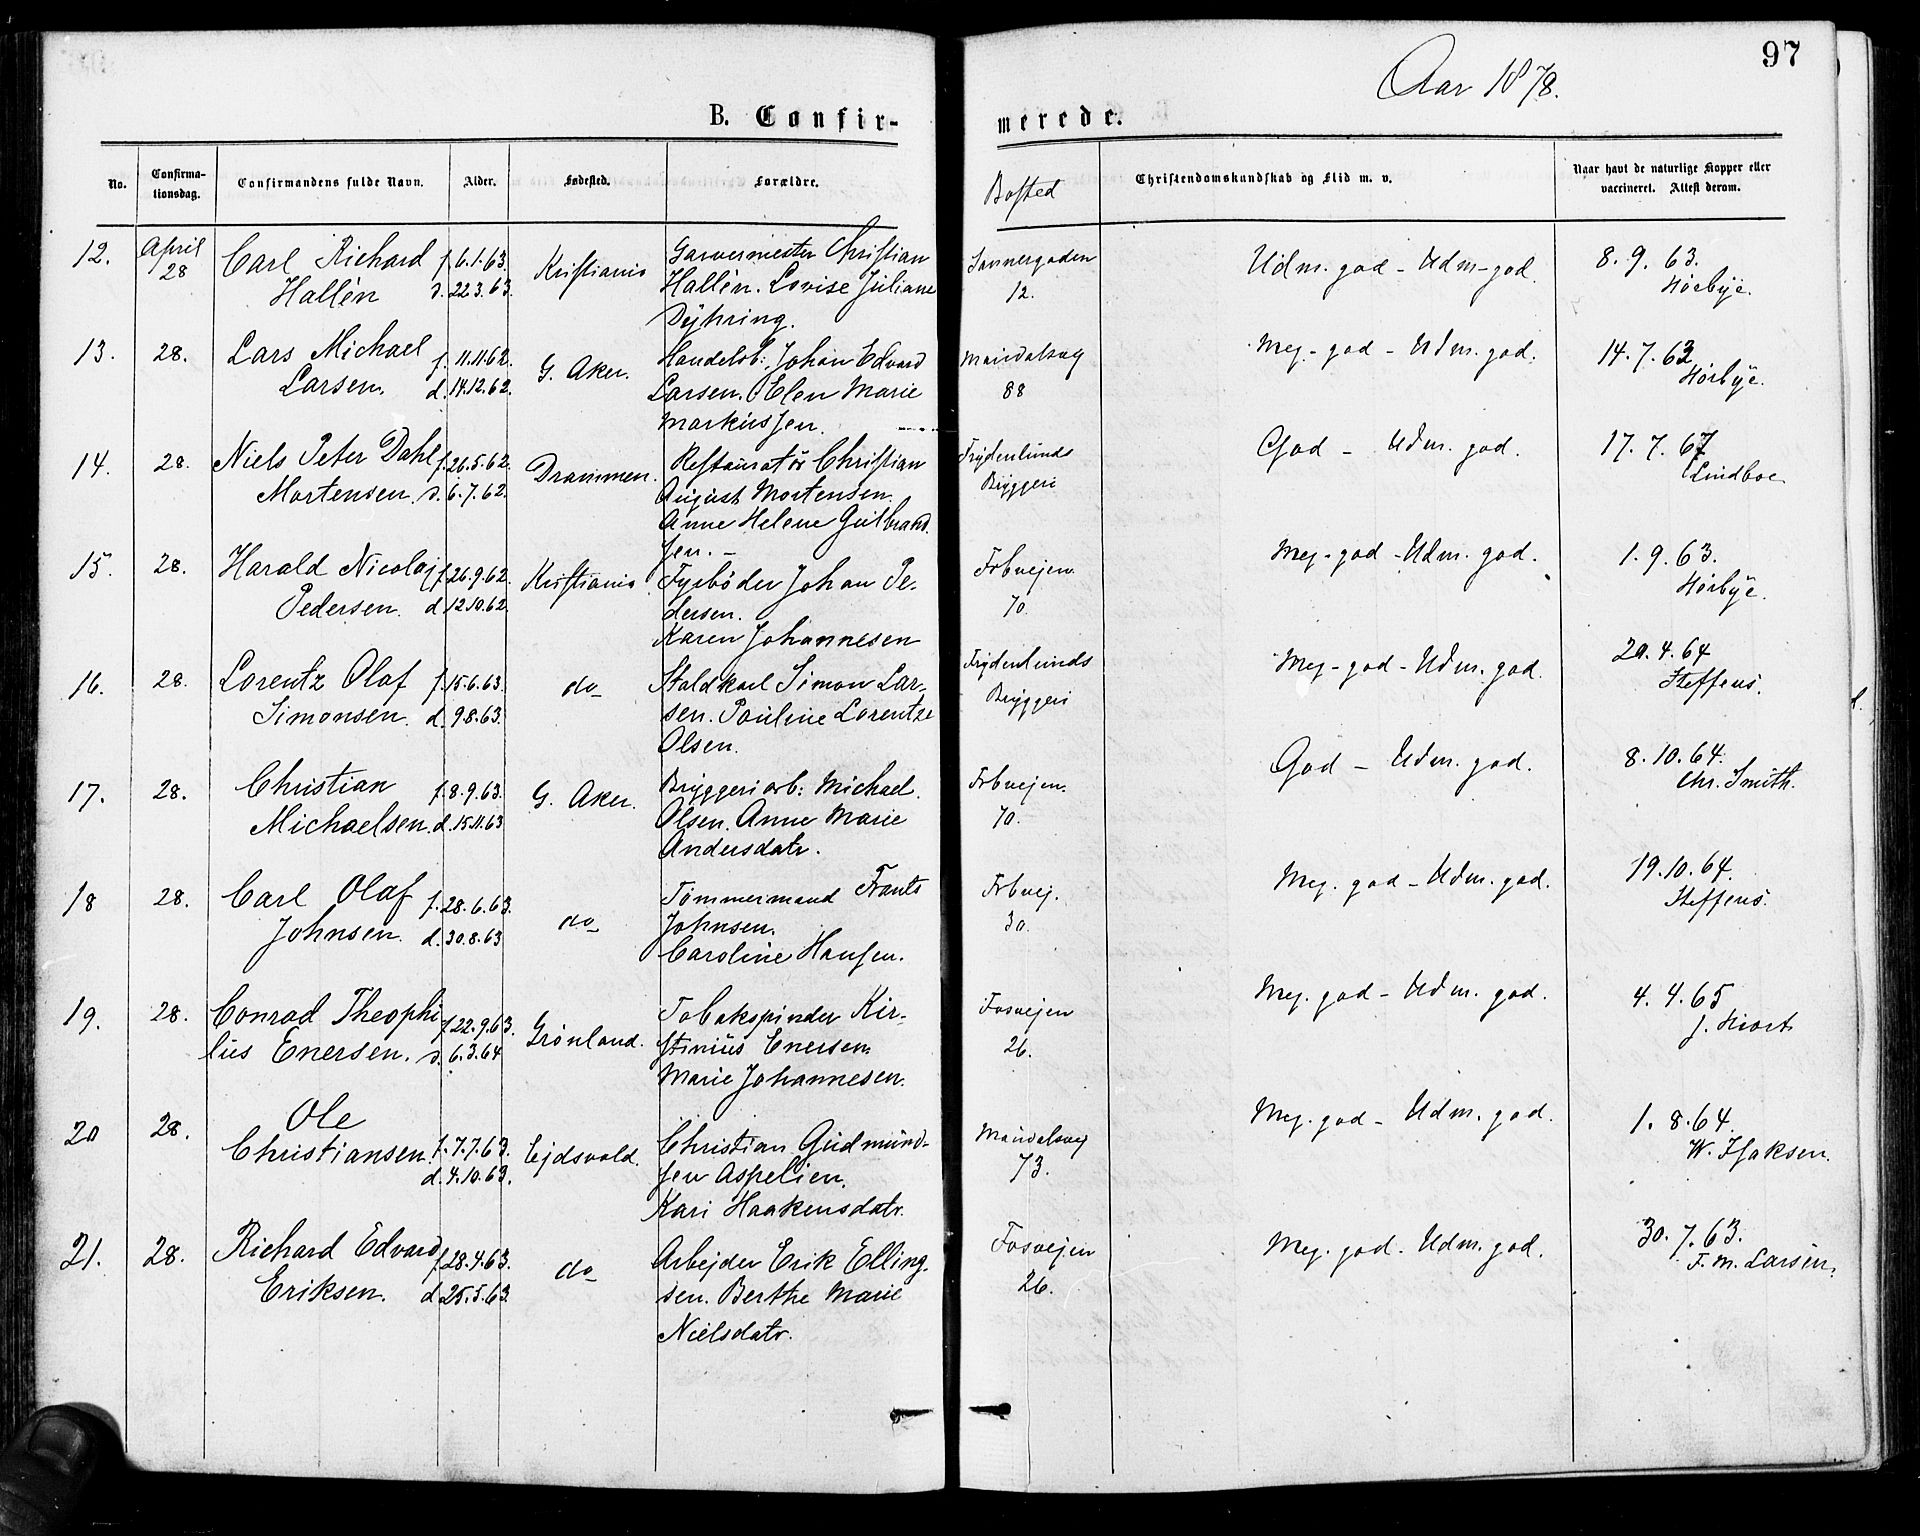 97
Aar 1878.
B. Confir-
merede.
No.
Confirma-
tionsdag.
Confirmandens fulde Navn.
Alder.
Fødested.
Forældre.
Bosted
Christendomskundskab og Flid m. v.
Naar havt de naturlige Kopper eller
vaccineret. Attest derom.
12.
April
28
Carl Richard
Hallén
f. 6.1.63.
d. 22.3.63.
Kristiania
Garvermester Christian
Hallén. Lovise Juliane
Dyhring.
Sannergaden
12.
Udm. god - Udm - god.
8. 9. 63.
Hørbye.
13.
28.
Lars Michael
Larsen.
f. 11.11.62.
d. 14.12.62.
G. Aker.
Handelsb: Johan Edvard
Larsen. Elen Marie
Markussen.
Maridalsvej
88
Meg - god - Udm. god.
14.7.63
Hørbye.
14.
28.
Niels Peter Dahl
Mortensen.
f. 26.5.62.
d. 6.7.62.
Drammen.
Restauratør Christian
August Mortensen.
Anne Helene Gulbrand.
sen. -
Frydenlunds
Bryggeri
God - Udm. god.
17. 7. 67
Lindboe
15.
28.
Harald Nicolaj
Pedersen.
f. 26.9.62.
d. 12.10.62.
Kristiania
Fyrbøder Johan Pe-
dersen.
Karen Johannesen
Frbvejen
70.
Meg - god - Udm. god.
1. 9. 63.
Hørbye.
16.
28.
Lorentz Olaf
Simonsen.
f. 15.6.63.
d. 9.8.63.
do
Staldkarl Simon Lar-
sen. Pauline Lorentze
Olsen.
Frydenlunds
Bryggeri
Meg - god - Udm. god.
20. 4. 64
Steffens.
17.
28.
Christian
Michaelsen.
f. 8.9.63.
d. 15.11.63
G. Aker.
Bryggeriarb: Michael
Olsen. Anne Marie
Andersdatr.
Frbvejen.
70.
God - Udm. god.
8. 10. 64.
Chr. Smith.
18
28.
Carl Olaf
Johnsen.
f. 28.6.63.
d. 30.8.63
do
Tømmermand Frants
Johnsen.
Caroline Hansen.
Frbvej.
30.
Meg. god - Udm. god.
19.10.64.
Steffens.
19.
28.
Conrad Theophi
lus Enersen.
f. 22.9.63.
d. 6.3.64
Grønland.
Tobakspinder Kir-
stinius Enersen
Marie Johannesen.
Fosvejen
26.
Meg. god - Udm. god.
4. 4. 65
J. Hiort
20
28.
Ole
Christiansen
f. 7.7.63.
d. 4.10.63.
Ejdsvold.
Christian Gudmund-
sen Aspelien.
Kari Haakensdatr.
Maridalsvej
73.
Meg. god - Udm. god.
1. 8. 64.
W. Isaksen.
21.
28.
Richard Edvard
Eriksen.
f. 28.4.63.
d. 25.5.63.
do
Arbejder Erik Elling.
sen. Berthe Marie
Nielsdatr.
Fosvejen
26.
Meg. god - Udm. god.
30. 7. 63.
F. M. Larsen.